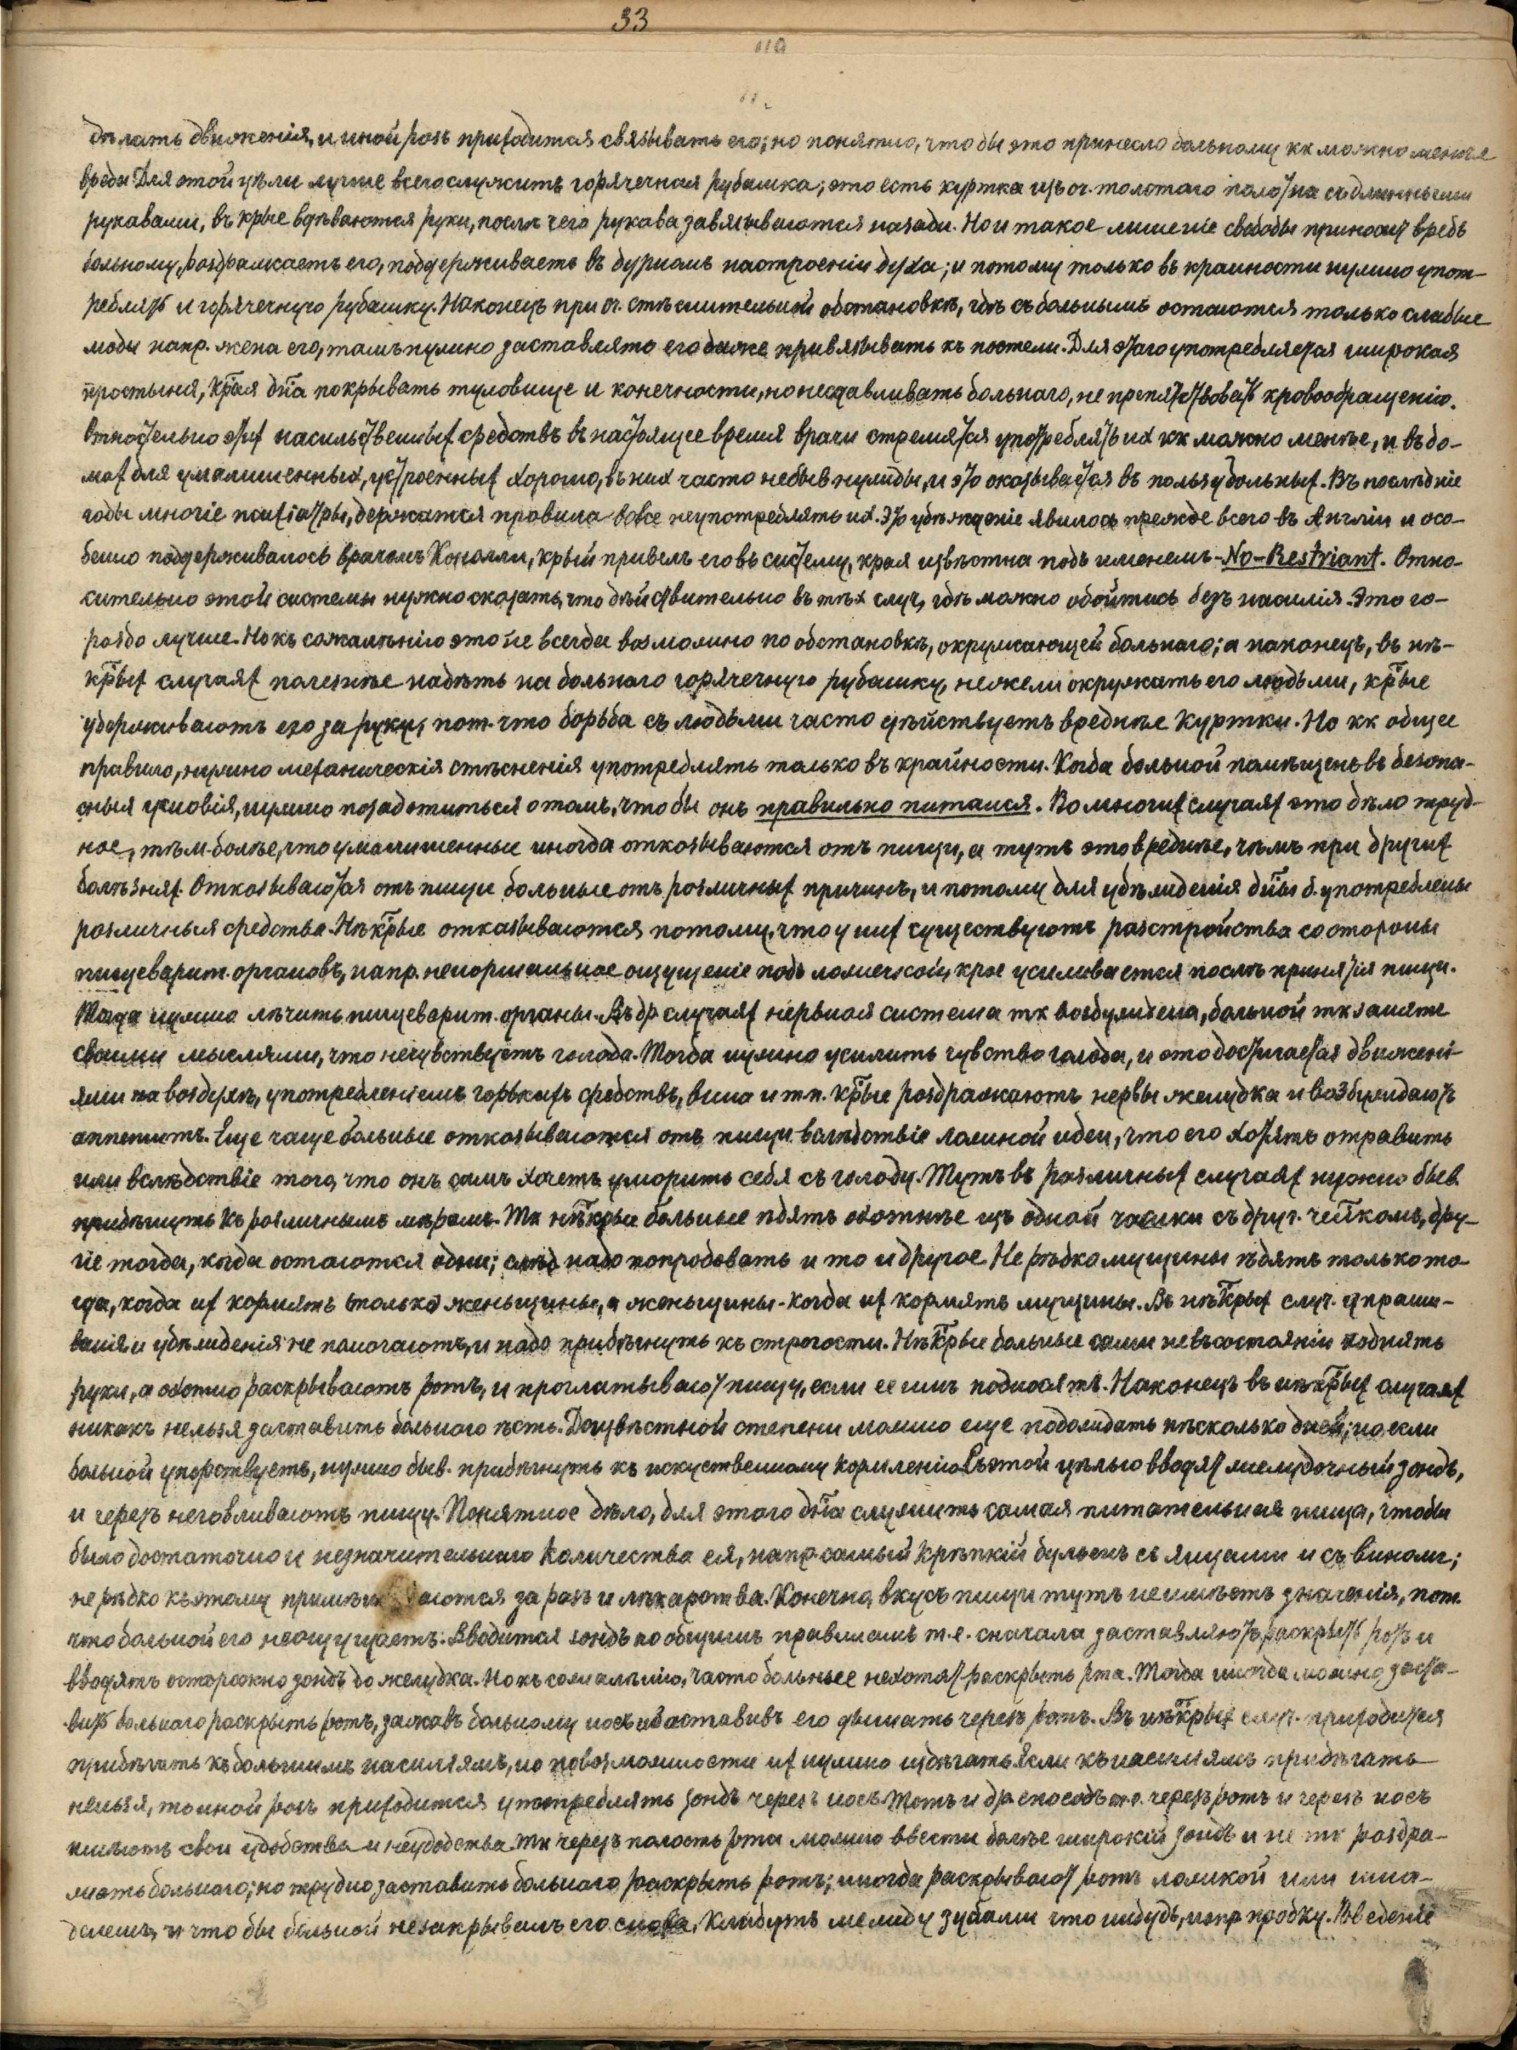 33
дѣлать движенія, и иной разъ приходится связывать его; но понятно, что бы это принесло больному кк можно менѣе
вреда Для этой цѣли лучше всего служитъ горячечная рубашка; это есть куртка изъ оч. толстаго полотна съ длинными
рукавами, въ крые вдѣваются руки, послѣ чего рукава завязываются назади. Но и такое лишеніе свободы приноситъ вредъ
больному, раздражаетъ его, поддерживаетъ въ дурномъ настроеніи духа; и потому только въ крайности нужно упот-
реблять и горячечную рубашку. Наконецъ при оч. стѣснительной обстановкѣ, гдѣ съ больнымъ остаются только слабые
люди напр. жена его, тамъ нужно заставлять его даже привязывать къ постели. Для этаго употребляется широкая
простыня, края дна покрывать туловище и конечности, но не сдавливать больнаго, не препятствовать кровообращенію.
Относительно этихъ насильственныхъ средствъ въ настоящее время врачи стремятся употреблять ихъ кк можно менѣе, и въ до-
махъ для умалишенныхъ, устроенныхъ хорошо, въ нихъ часто не быв нужды, и это оказывается въ пользу больныхъ. Въ послѣдніе
годы многіе психіатры, держатся правила вовсе неупотреблять ихъ. Это убѣжденіе явилось прежде всего въ Англіи и осо-
бенно поддерживалось врачомъ Конолли, крый привелъ его въ систему, края извѣстна подъ именемъ - No-Restriant. Отно-
сительно этой системы нужно сказать, что дѣйствительно въ тѣхъ случ, гдѣ можно обойтись безъ насилія. Это го-
раздо лучше. Но къ сожалѣнію это не всегда возможно по обстановкѣ, окружающей больнаго; а наконецъ, въ нѣ-
крыхъ случаяхъ полезнѣе надѣть на больнаго горячечную рубашку, нежели окружать его людьми, крые
удерживаютъ его за руки, пот. что борьба съ людьми часто дѣйствуетъ вреднѣе куртки. Но кк общее
правило, нужно механическія стѣсненія употреблять только въ крайности. Когда больной помѣщенъ въ безопа-
сныя условія, нужно позаботиться о томъ, что бы онъ правильно питался. Во многихъ случаяхъ это дѣло труд-
ное, тѣм болѣе, что умалишенные иногда отказываются отъ пищи, а тутъ это вреднѣе, чѣмъ при другихъ
болѣзняхъ. Отказываются отъ пищи больные отъ различныхъ причинъ, и потому для убѣжденія дны б. употреблены
различныя средства. Нѣкрые отказываются потому, что у нихъ существуютъ разстройства со стороны
пищеварит. органовъ, напр. ненормальное ощущеніе подъ ложечкой, крое усиливается послѣ принятія пищи.
Тогда нужно лѣчить пищеварит. органы. Въ др случаяхъ нервная система тк возбуждена, больной тк занятъ
своими мыслями, что нечувствуетъ голода. Тогда нужно усилить чувство голода, и это достигается движені-
ями на воздухѣ, употребленіемъ горькихъ средствъ, вина и т.п. крые раздражаютъ нервы желудка и возбуждаютъ
аппетитъ. Еще чаще больные отказываются отъ пищи вслѣдствіе ложной идеи, что его хотятъ отравить
или вслѣдствіе того, что онъ самъ хочетъ уморить себя съ голоду. Тутъ въ различныхъ случаяхъ нужно быв
прибѣгнуть къ различнымъ мѣрамъ. Тк нѣкрые больные ѣдятъ охотнѣе изъ одной чашки съ друг. челкомъ, дру-
гіе тогда, когда остаются одни; слѣд надо попробовать и то и другое. Не рѣдко мущины ѣдятъ только то-
гда, когда ихъ кормятъ только женьщины, а женьщины - когда ихъ кормятъ мущины. Въ нѣкрыхъ случ. упраши-
ванія и убѣжденія не помогаютъ, и надо прибѣгнуть къ строгости. Нѣкрые больные сами не въ состояніи поднять
руки, а охотно раскрываютъ ротъ, и проглатываютъ пищу, если ее имъ подносятъ. Наконецъ въ нѣкрыхъ случаяхъ
никакъ нельзя заставить больнаго ѣсть. До извѣстной степени можно еще подождать нѣсколько дней; но если
больной упорствуетъ, нужно быв. прибѣгнуть къ искуственному кормленію Съ этой цѣлью вводятъ желудочный зондъ,
и черезъ него вливаютъ пищу. Понятное дѣло, для этого дна служить самая питательная пища, чтобы
было достаточно и незначительнаго количества ея, напр самый крѣпкій бульонъ съ яицами и съ виномъ;
не рѣдко къ этому примѣши ваются за разъ и лѣкарства. Конечно, вкусъ пищи тутъ не имѣетъ значенія, пот.
что больной его неощущаетъ. Вводится зондъ по общимъ правиламъ т.е. сначала заставляютъ раскрыть ротъ и
вводятъ осторожно зондъ до желудка. Но къ сожалѣнію, часто больные не хотятъ раскрыть рта. Тогда иногда можно заста-
вить больнаго раскрыть ротъ, зажавъ больному носъ и заставивъ его дышать черезъ ротъ. Въ нѣкрыхъ случ. приходится
прибѣгать къ большимъ насиліямъ, но по возможности ихъ нужно избѣгать Если къ насиліямъ прибѣгать
нельзя, то иной разъ приходится употреблять зондъ черезъ носъ. Тотъ и др способъ т.е. черезъ ротъ и черезъ носъ
имѣютъ свои удобства и неудобства. Тк черезъ полость рта можно ввести болѣе широкій зондъ и не тк раздра-
жать больнаго; но трудно заставить больнаго раскрыть ротъ; иногда раскрываютъ ротъ ложкой или шпа-
делемъ, и что бы больной незакрывалъ его снова, кладутъ между зубами что нибудь, напр пробку. Введеніе